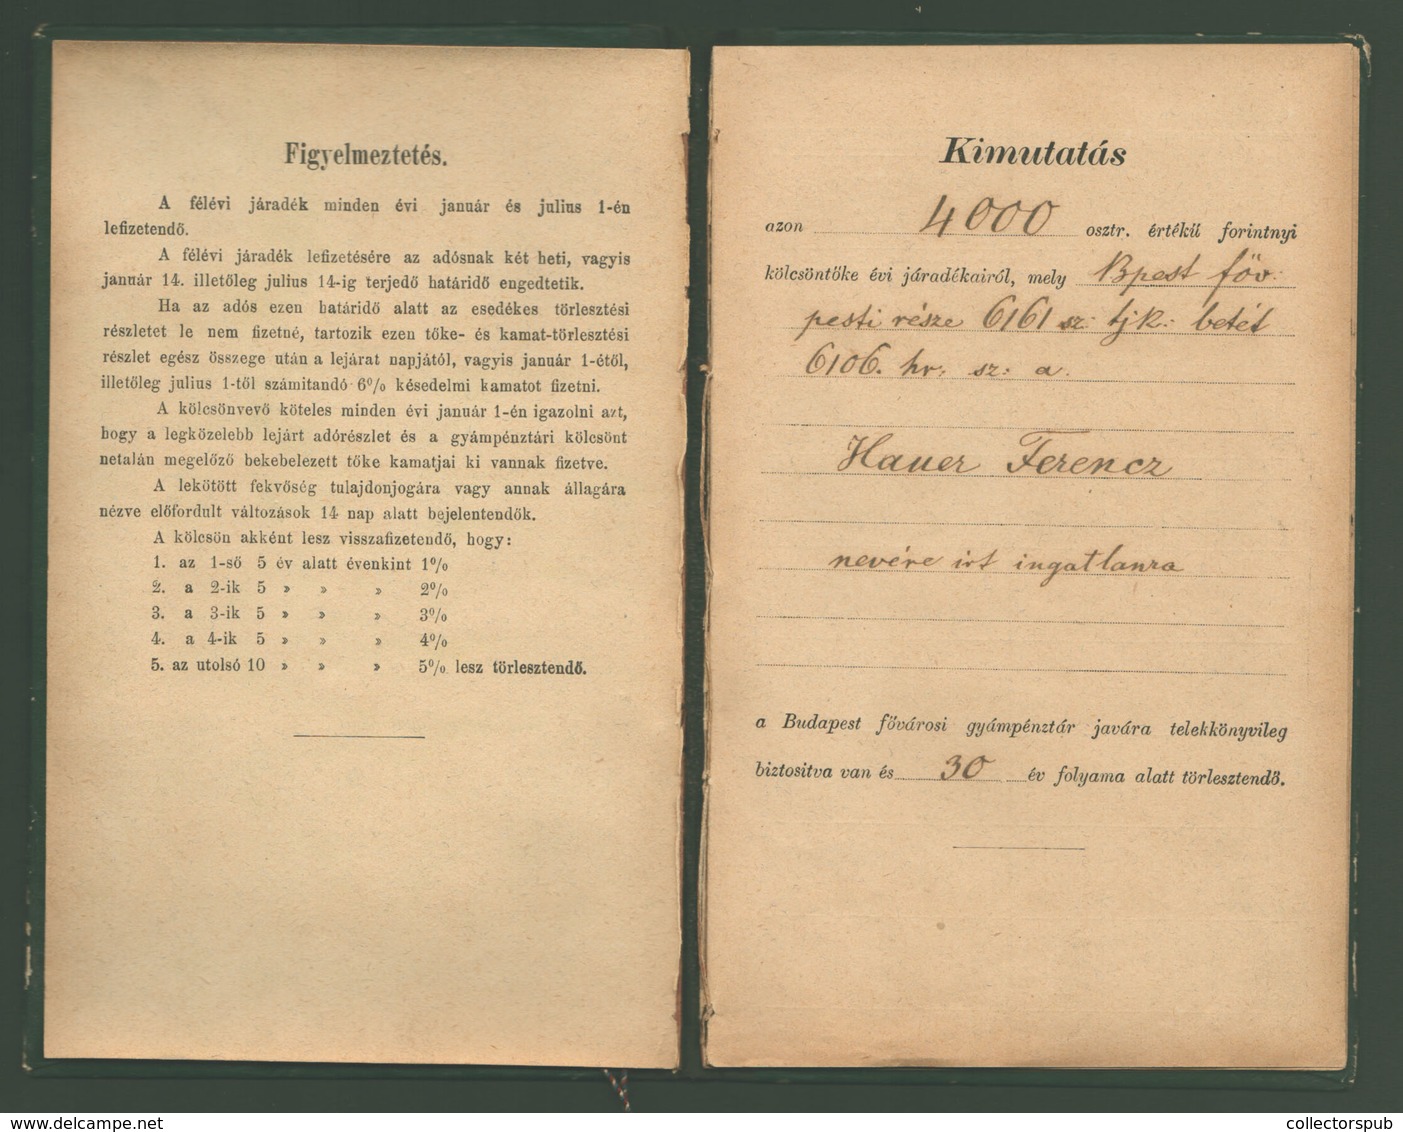 Figyelmeztetés.
A félévi járadék minden évi január és julius 1-én
lefizetendő.
A félévi járadék lefizetésére az adósnak két heti, vagyis
január 14. illetőleg julius 14-ig terjedő határidő engedtetik.
Ha az adós ezen határidő alatt az esedékes törlesztési
részletet le nem fizetné, tartozik ezen tőke- és kamat-törlesztési
részlet egész összege után a lejárat napjától, vagyis január 1-étől,
illetőleg julius 1-től számitandó 6% késedelmi kamatot fizetni.
A kölcsönvevő köteles minden évi január 1-én igazolni azt,
hogy a legközelebb lejárt adórészlet és a gyámpénztári kölcsönt
netalán megelőző bekebelezett tőke kamatjai ki vannak fizetve.
A lekötött fekvőség tulajdonjogára vagy annak állagára
nézve előfordult változások 14 nap alatt bejelentendők.
A kölcsön akként lesz visszafizetendő, hogy:
1. az 1-ső 5 év alatt évenkint 1%
2. a 2-ik 5 » » » 2%
3. a 3-ik 5 » » » 3%
4. a 4-ik 5 » » » 4%
5. az utolsó 10 » » » 5% lesz törlesztendő.
Kimutatás
azon 4000 osztr. értékű forintnyi
kölcsöntőke évi járadékairól, mely Bpest főv.
pesti része 6161 sz: tjk: betét
6106. hr. sz: a.
Hauer Ferencz
nevére irt ingatlanra
a Budapest fővárosi gyámpénztár javára telekkönyvileg
biztositva van és 30 év folyama alatt törlesztendő.
www.delcampe.net
collectorspub